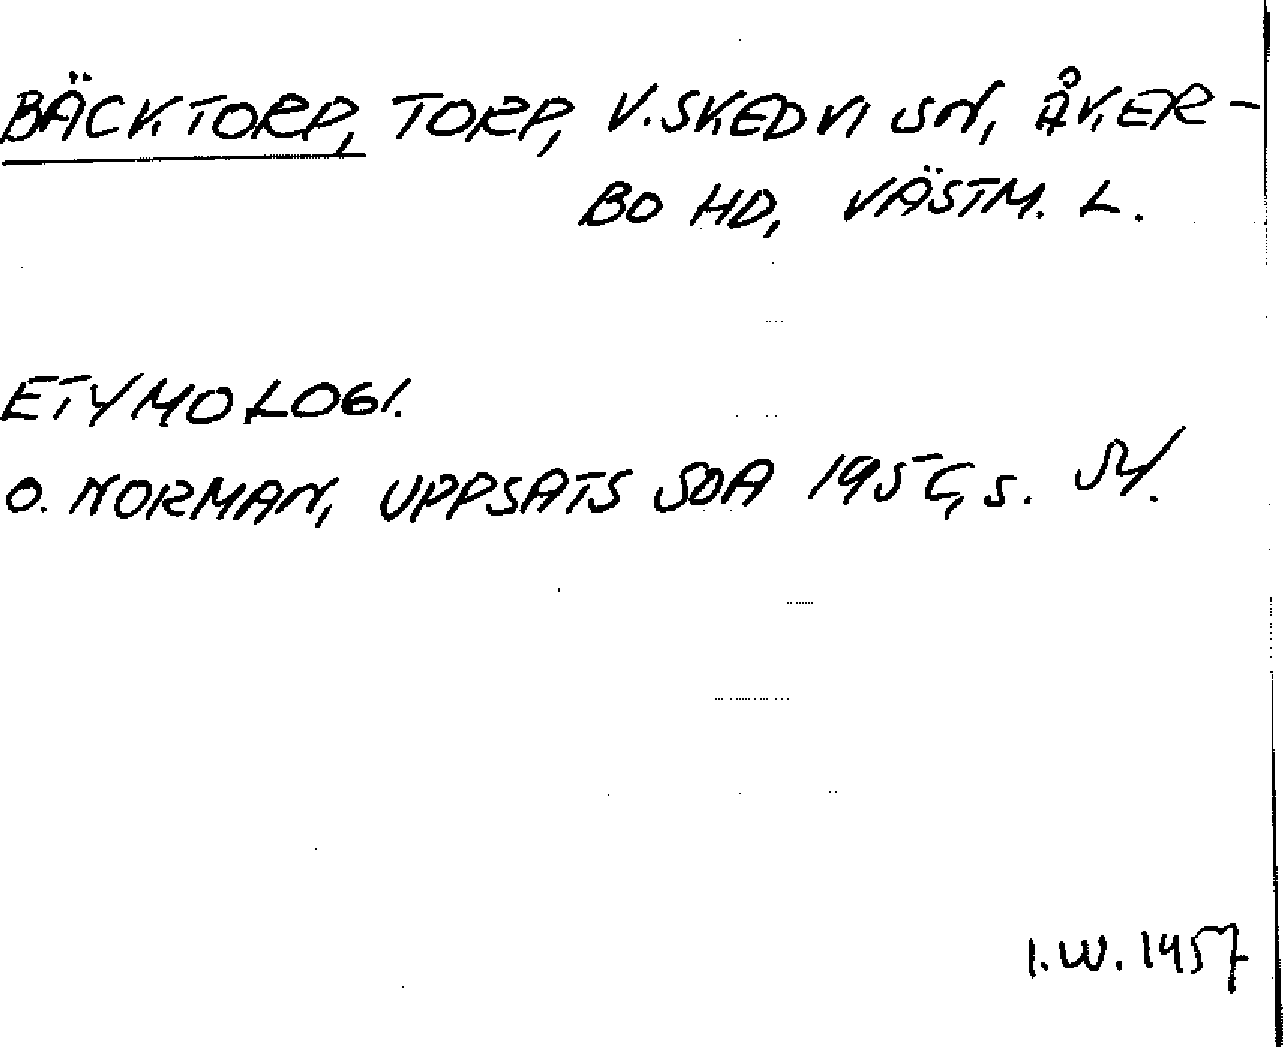 BÄCKTORP, TORP, V. SKEDVI SN, ÅKER-
BO HD, VÄSTM. L.
ETYMOLOGI.
O. NORMAN, UPPSATS SOA 195 , s.
I.W. 1957